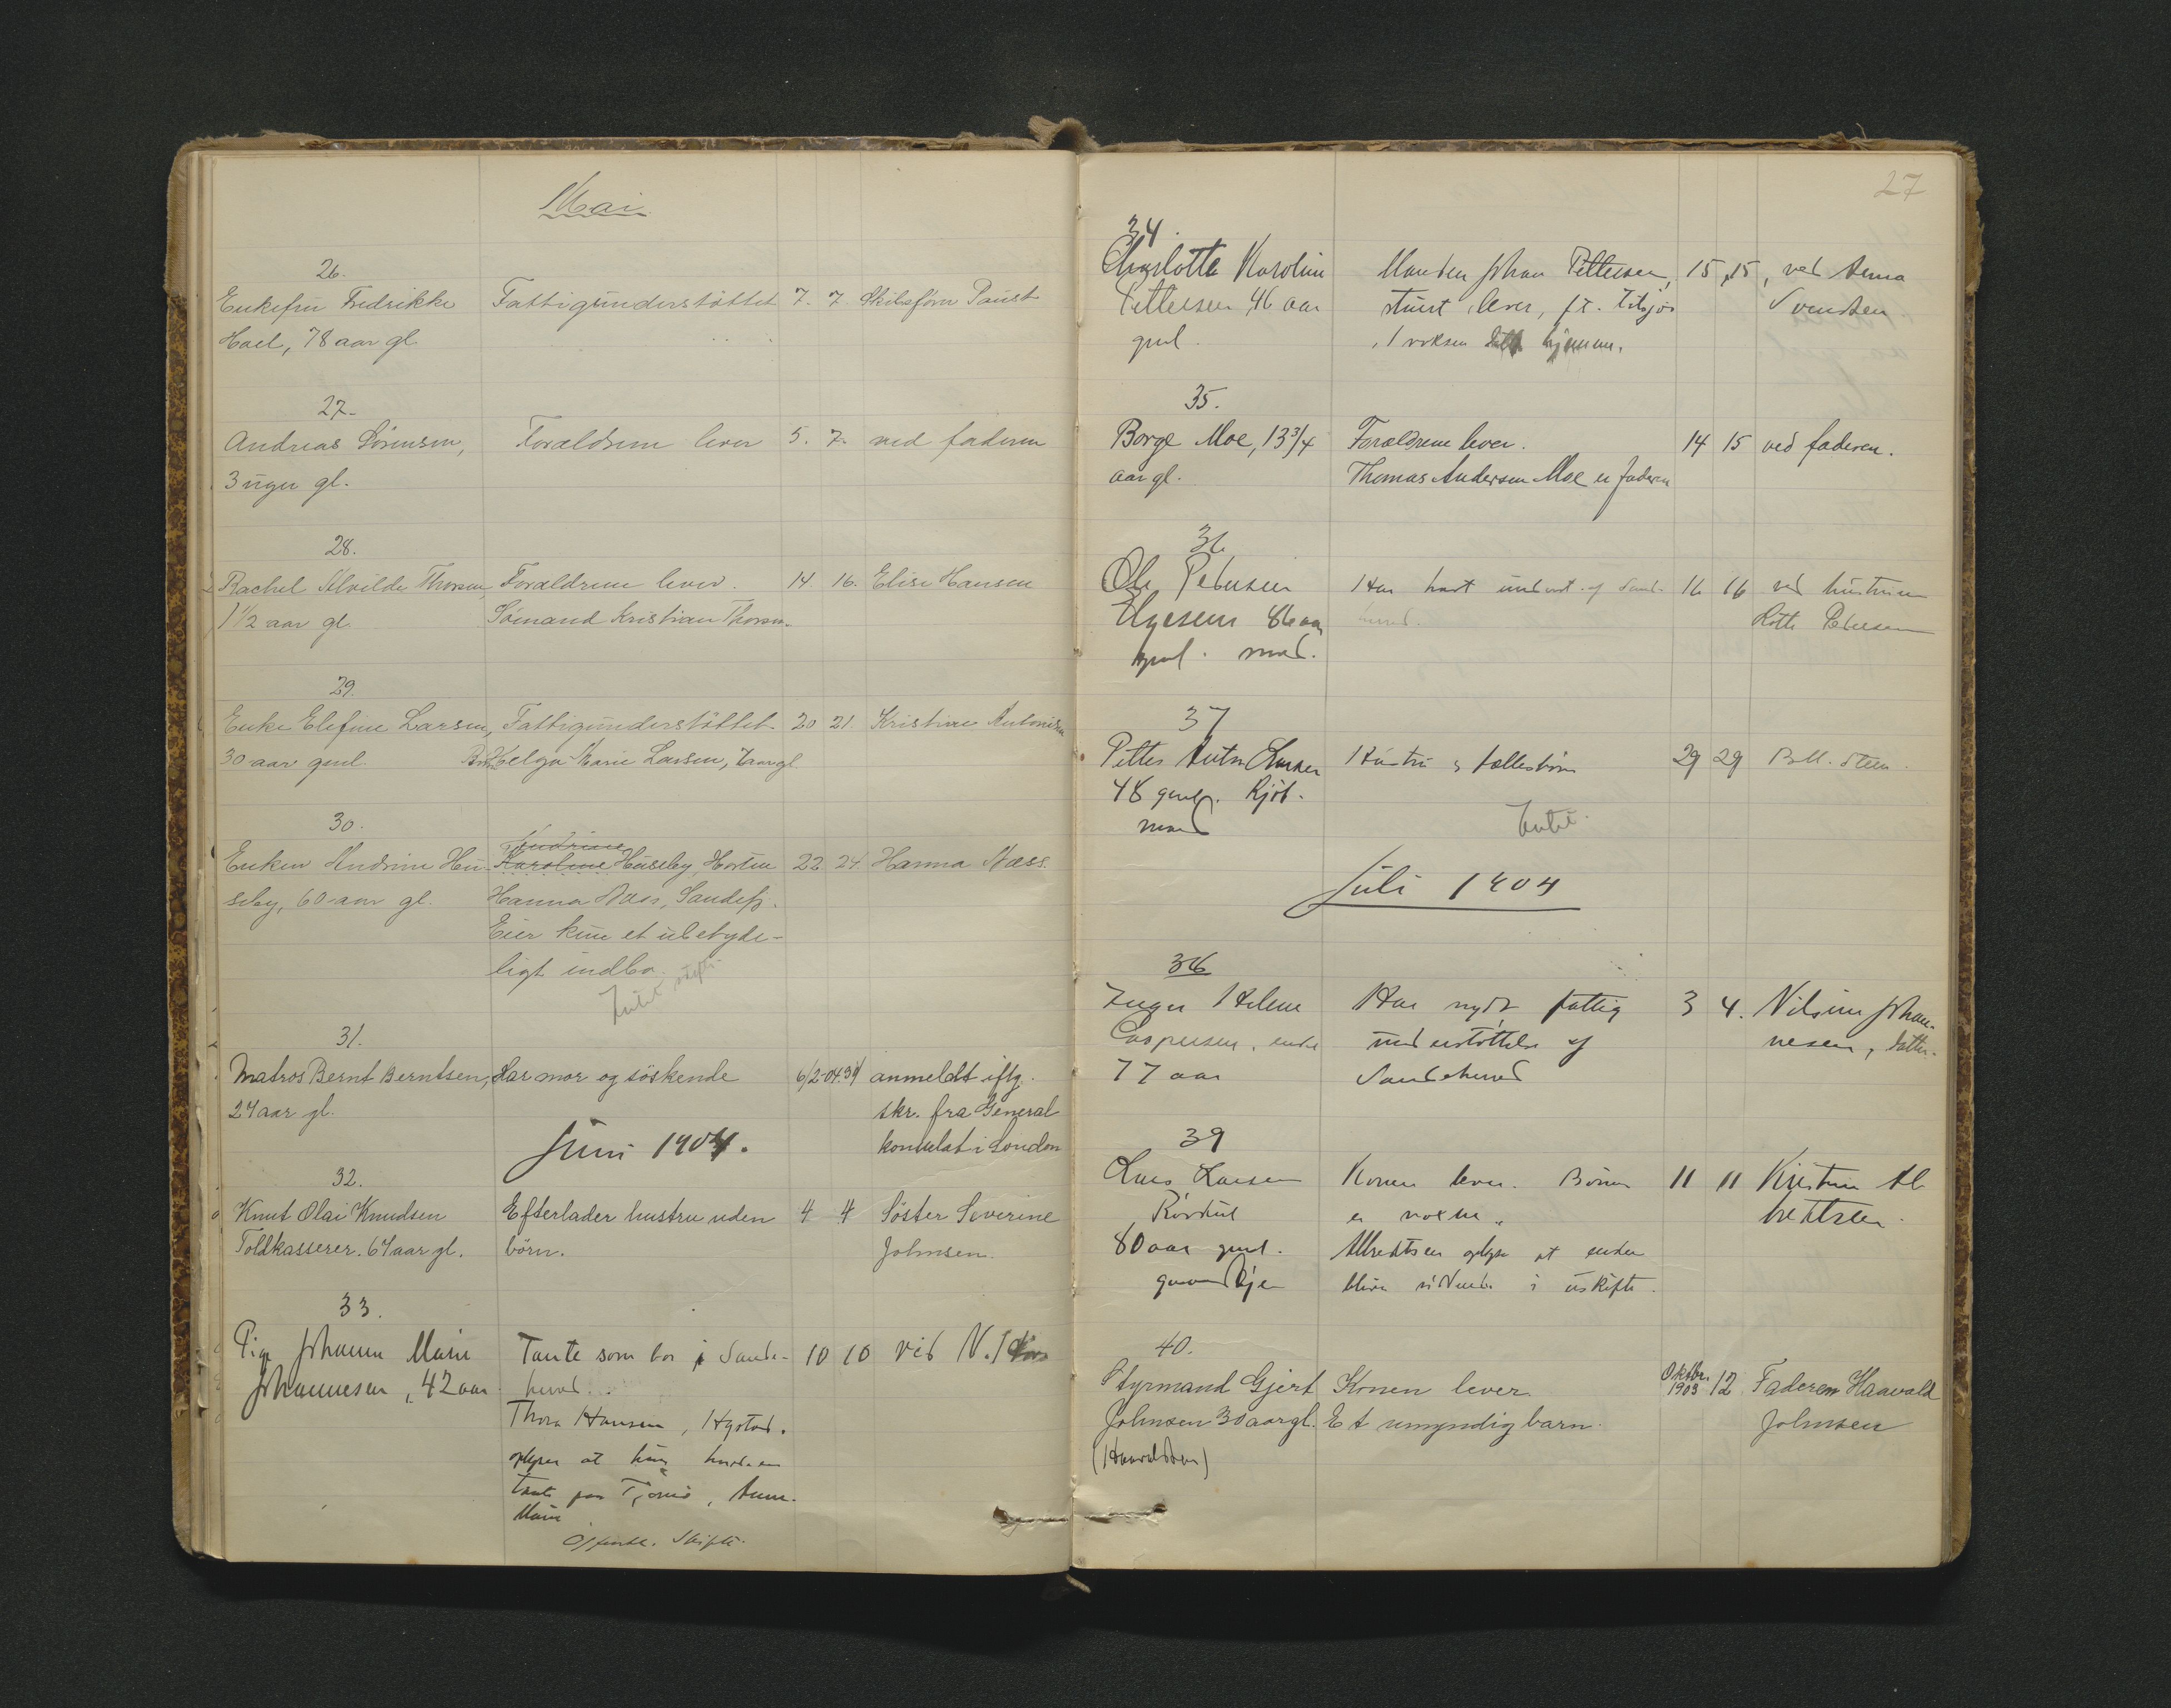 Mai
26.
Enkefru Fredrikke Fattigunderstøttet 7. 7. Skibsfører Paust
Hoel, 78 aar gl.
27.
Andreas Sørensen, Forældrene lever 5. 7. ved faderen
3 uger gl.
28.
Rachel Alvilde Thorsen, Forældrene lever. 14 16. Elise Hansen
1 1/2 aar gl. Sømand Kristian Thorsen.
29.
Enke Elefine Larsen, Fattigunderstøttet. 20 21. Kristine Antonisen
30 aar gml. Barn Helga Marie Larsen, 7 aar gl
30.
Andrine
Enken Andrine Hu- Karoline Huseby, Horten 22 24. Hanna Næss.
seby, 60 aar gl. Hanna Næss, Sandefj.
Eier kun et ubetyde-
ligt indbo.
Intet skifte
31.
Matros Bernt Berntsen, Har mor og søskende 6/2-04. 31/ anmeldt iflg.
24 aar gl. skr. fra General
konsulat i London
Juni 1904.
32.
Knut Olai Knudsen Efterlader hustru uden 4 4 Søster Severine
Toldkasserer. 64 aar gl. børn. Johnsen.
33.
Pige Johanne Marie Tante som bor i Sande- 10 10 ved N. I.
Johannesen, 42 aar herred.
Thora Hansen, Hystad.
oplyser at hun havde en
tante paa Tjømø, Anne
Marie
Offentl. Skifte.
27
34.
Charlotte Karoline Manden Johan Pettersen, 15 15, ved Anna
Pettersen, 46 aar stuert lever, f.t. tilsjøs Svendsen
gml. 1 voksen hjemme.
35.
Borge Moe, 13 3/4 Forældrene lever. 14 15 ved faderen.
aar gl. Thomas Andersen Moe er faderen
36
Ole Pedersen Har havt underst. af Sande- 16 16 ved hustruen
Elgesem 86 aar herred. Pedersen
gml. mand.
37
Petter Anton Hustru & fællesbørn 29 29 B. M. Steen.
48 gml. Kjøb-
mand Intet.
Juli 1904
38
Inger Helene Har nydt fattig 3 4. Nilsine Johan-
Caspersen, enke understøttelse af nesen, datter.
77 aar Sandeherred
39
Lars Larsen Konen lever. Børnene 11 11 Kristian Al-
er voksne. brektsen.
80 aar gml. Albrektsen oplyser at enken
bliver siddende i uskifte.
40.
Styrmand Gjert Konen lever. Oktbr. 1903 12 Faderen Haavald
Johnsen 30 aar gl. Et umyndig barn. Johnsen
(Haavaldsen)